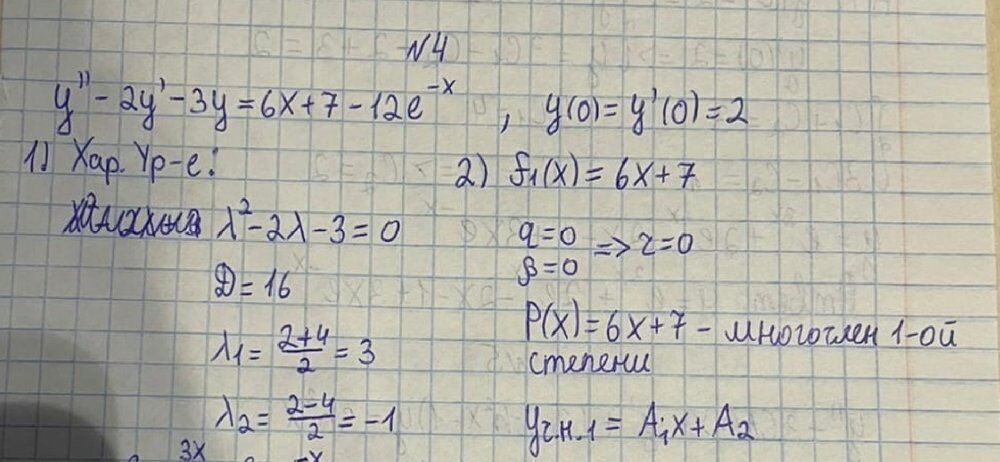 N4
y'' - 2y' - 3y = 6x + 7 - 12e^{-x}, y(0) = y'(0) = 2
1) Хар. Ур-е:
λ² - 2λ - 3 = 0
D = 16
λ1 = (2+4)/2 = 3
λ2 = (2-4)/2 = -1
3x -x
2) f1(x) = 6x + 7
α = 0
β = 0 => r = 0
P(x) = 6x + 7 - многочлен 1-ой
степени
Yч.н.1 = A1x + A2